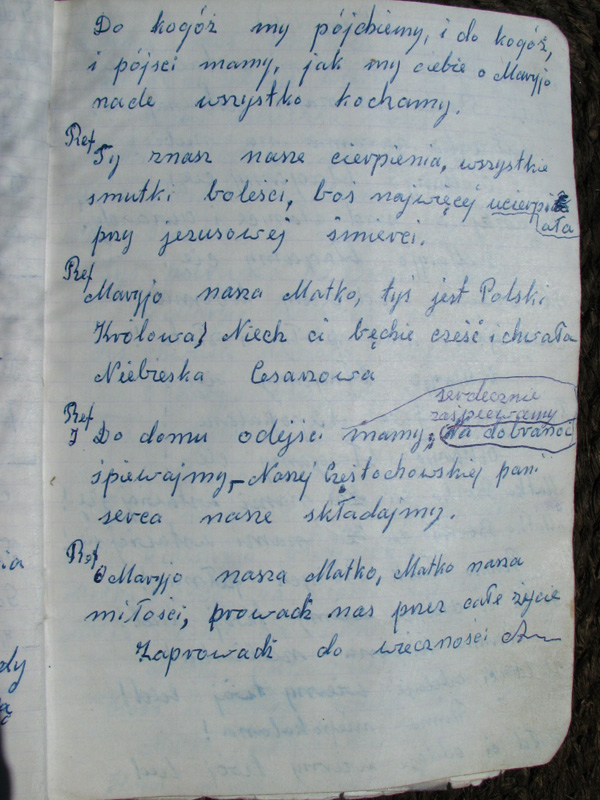 Do kogóż my pójdziemy, i do kogóż,
i pójści mamy, jak my ciebie o Maryjo
nade wszystko kochamy.
Ref
Ty znasz nasze cierpienia, wszystkie
smutki boleści, boś najwięcej ucierpi
ała
przy jezusowej śmierci.
Ref
Maryjo nasza Matko, tyś jest Polski
Królową} Niech ci będzie cześć i chwała
Niebieska Cesarzowa
serdecznie
zaśpiewamy
Ref
I Do domu odejści mamy, Na dobranoc
śpiewajmy, Naszej Częstochowskiej pani
serca nasze składajmy.
Ref
O Maryjo nasza Matko, Matko nasza
miłości, prowadź nas przez całe życie
Zaprowadź do wieczności
dy